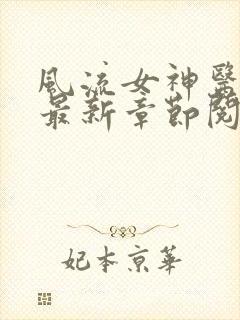 風流女神醫
最新章節閱
妃本京華